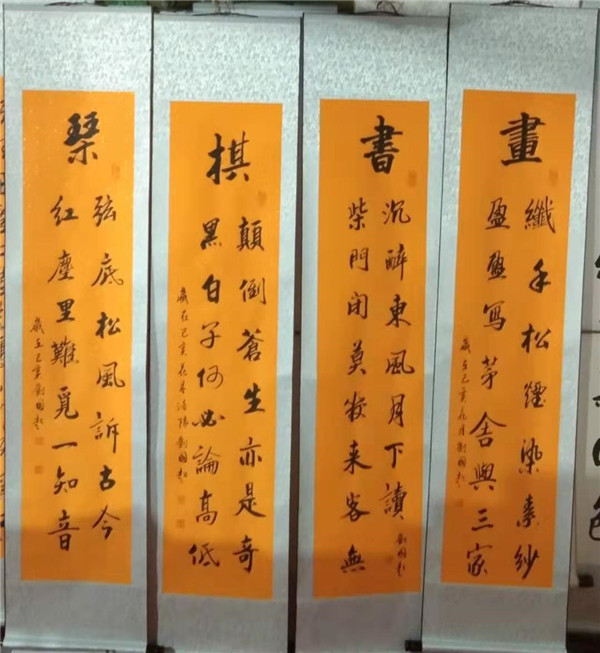 琴
弦底松風訴古今
紅塵里難覓一知音
歲在己亥劉國
棋
顛倒蒼生亦是奇
黑白子何必論高低
歲在己亥洛陽劉國
書
沉醉東風月下讀
柴門闭莫来客無
劉國
畫
纖手松染素紗
盈盈寫茅舍與三家
歲在己亥劉國